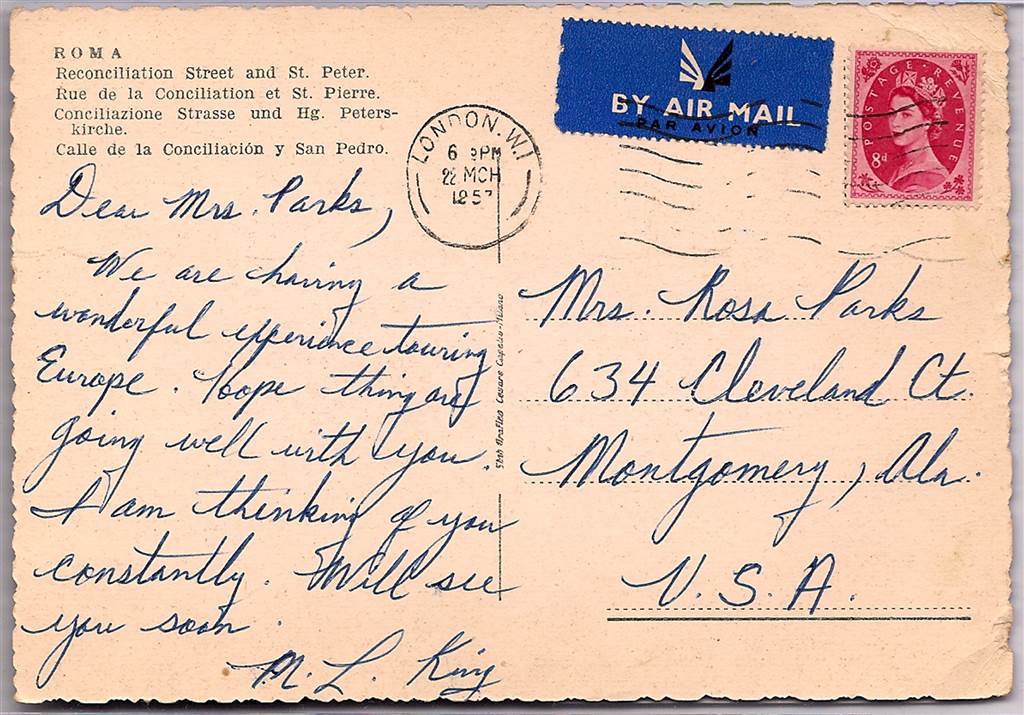 ROMA
Reconciliation Street and St. Peter.
Rue de la Conciliation et St. Pierre.
Conciliazione Strasse und Hg. Peters-
kirche.
Calle de la Conciliación y San Pedro.
LONDON. W.1
6 PM
22 MCH
1957
BY AIR MAIL
PAR AVION
POSTAGE REVENUE
8d
Dear Mrs. Parks,
We are having a
wonderful experience touring
Europe. Hope things are
going well with you
I am thinking of you
constantly. Will see
you soon.
M. L. King
Mrs. Rosa Parks
634 Cleveland Ct.
Montgomery, Ala.
U.S.A.
Cesare Capello-Milano